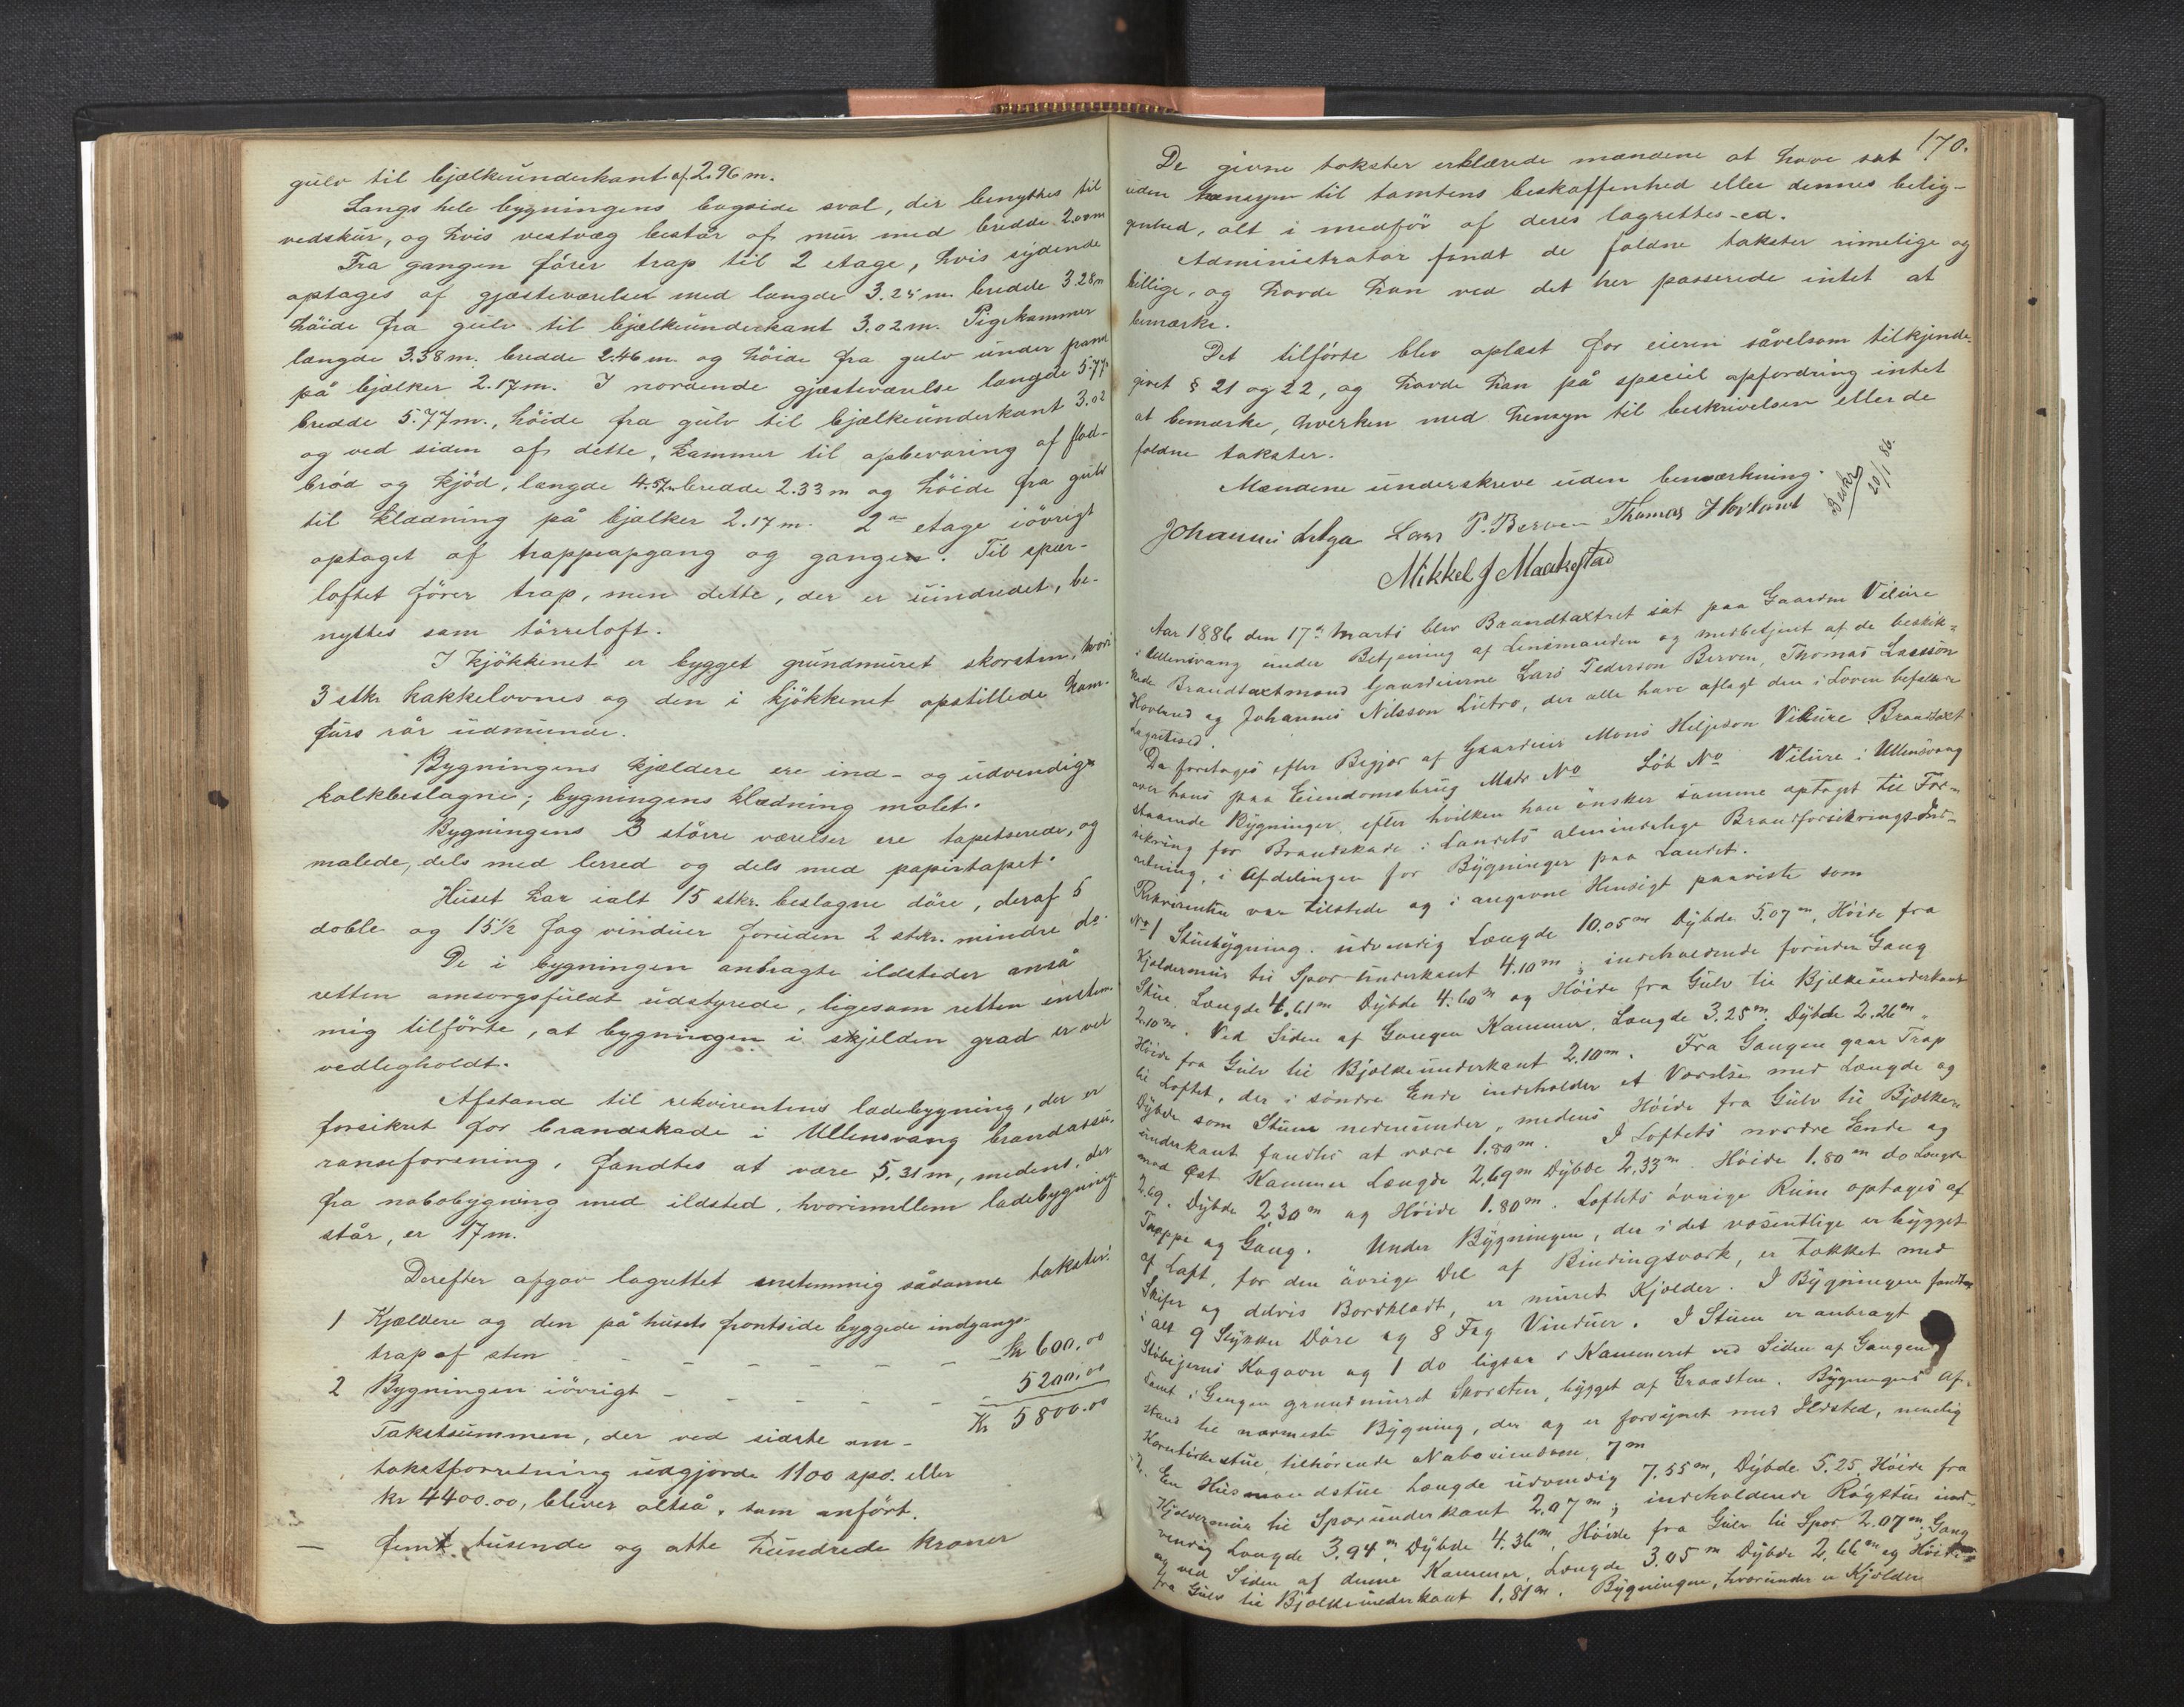 gulv til bjælkeunderkant af 2.96 m.
Langs hele bygningens bagside sval, der benyttes til
vedskur, og hvis vestvæg består af mur med bredde 2.00m
Fra gangen fører trap til 2 etage, hvis sydende
optages af gjæsteværelser med længde 3.25 m. bredde 3.28m
höide fra gulv til bjælkeunderkant 3.02 m. Pigekammer
længde 3.38 m. bredde 2.46 m. og höide fra gulv under pand
på bjælker 2.17 m. I nordende gjæsteværelse længde 5.77
bredde 5.77 m., höide fra gulv til bjælkeunderkant 3.02
og ved siden af dette, kammer til opbevaring af flad-
bröd og kjöd, længde 4.57m bredde 2.33 m og höide fra gulv
til klædning på bjælker 2.17 m. 2den etage iövrigt
optaget af trappeopgang og gangen. Til spær-
loftet förer trap, men dette, der er uindredet, be-
nyttes som törreloft.
I kjökkenet er bygget grundmuret skorsten, hvori
3 stkr kakkelovnes og den i kjökkenet opstillede kom-
furs rör udmunde.
Bygningens kjældere ere ind- og udvendige
kalkbeslagne; bygningens klædning malet.
Bygningens 3 större værelser ere tapetserede, og
malede, dels med lerred og dels med papirtapet.
Huset har ialt 15 stkr. beslagne döre, deraf 5
doble og 15½ fag vinduer foruden 2 stkr. mindre do.
De i bygningen anbragte ildsteder anså
retten omsorgsfuldt udstyrede, ligesom retten enstem-
mig tilförte, at bygningen i skjelden grad er vel
vedligholdt.
Afstand til rekvirentens ladebygning, der er
forsikret for brandskade i Ullensvang brandassu-
ranseforening, fandtes at være 5.31 m, medens den
fra nabobygning med ildsted, hvorimellem ladebygninge
står, er 17 m.
Derefter afgav lagrettet enstemmig sådanne takster:
1 Kjældere og den på husets frontside byggede indgangs-
trap af sten - - - - - - Kr 600.00
2 Bygningen iövrigt - - - - - 5200.00
Kr 5800.00
Takstsummen, der ved sidste om-
takstforretning udgjorde 1100 spd. eller
kr 4400.00, bliver altså, som anfört.
— femt tusende og otte hundrede kroner
170.
De givne takster erklærede mændene at have sat
uden hensyn til tomtens beskaffenhed eller dennes belig-
genhed, alt i medför af deres lagrettes-ed.
Administrator fandt de faldne takster rimelige og
billige, og havde han ved det her passerede intet at
bemærke.
Det tilförte blev oplæst for eieren såvelsom tilkjende-
givet § 21 og 22, og havde han på speciel opfordring intet
at bemærke, hverken med hensyn til beskrivelsen eller de
faldne takster.
Mændene underskreve uden bemærkning.
Beskr
20/1 86.
Johannis Lutro Lars P. Berven Thomas Hovland
Mikkel J Maakestad
Aar 1886 den 17de Marts blev Brandtaxtret sat paa Gaarden Vilure
i Ullensvang under Betjening af Lensmanden og medbetjent af de beskik-
kede Brandtaxtmænd Gaardeierne Lars Pederson Berven, Thomas Larsson
Hovland og Johannis Nilsson Lutro, der alle have aflagt den i Loven befalede
Lagrettesed.
Da foretages efter Begjær af Gaardeier Mons Heljeson Vilure Brandtaxt
over hans paa Eiendomsbrug Matr No Löb No Vilure i Ullensvang
staaende Bygninger, efter hvilken han önsker samme optaget til For-
sikring for Brandskade i Landets almindelige Brandforsikrings-Ind-
retning, i Afdelingen for Bygninger paa Landet.
Rekvirenten var tilstede og i angivne Hensigt paaviste som
No 1 Stuebygning, udvendig Længde 10.05 m Dybde 5.07 m, Höide fra
Kjældermur til Spær-Underkant 4.10 m; indeholdende foruden Gang
Stue, Længde 4.61m Dybde 4.60 m og Höide fra Gulv til Bjælkeunderkant
2.10 m. Ved Siden af Gangen Kammer, Længde 3.25 m. Dybde 2.26 m,
Höide fra Gulv til Bjælkeunderkant 2.10 m. Fra Gangen gaar Trap
til Loftet, der i söndre Ende indeholder et Værelse med Længde og
Dybde som Stuen nedenunder, medens Höide fra Gulv til Bjælke-
underkant fandtes at være 1.80 m. I Loftets nordre Ende og
mod Öst Kammer Længde 2.69 m Dybde 2.33 m. Höide 1.80 m do Længde
2.69. Dybde 2.30 m og Höide 1.80 m. Loftets övrige Rum optages af
Trappe og Gang. Under Bygningen, der i det væsentlige er bygget
af Laft, for den övrige Del af Bindingsværk, er takket med
Skifer og delvis Bordklædt, er muret Kjælder. I Bygningen fandtes
i alt 9 Stykker Döre og 8 Fag Vinduer. I Stuen er anbragt
Stöbejerns Kogovn og 1 do ligesaa i Kammeret ved Siden af Gangen
samt i Gangen grundmuret Skorsten, bygget af Graasten. Bygningens Af-
stand til nærmeste Bygning, der og er forsynet med Ildsted, nemlig
Korntörkestue, tilhörende Naboeiendom 7 m
2. En Husmandsstue Længde udvendig 7.55 m, Dybde 5.25, Höide fra
Kjældermur til Spærunderkant 2.97 m; indeholdende Rögstue ind-
vendig Længde 3.94 m. Dybde 4.36 m, Höide fra Gulv til Spær 2.07 m, Gang
og ved Siden af denne Kammer, Længde 3.05 m Dybde 2.66 m og Höide
fra Gulv til Bjælkeunderkant 1.81 m. Bygningen, hvorunder er Kjælder